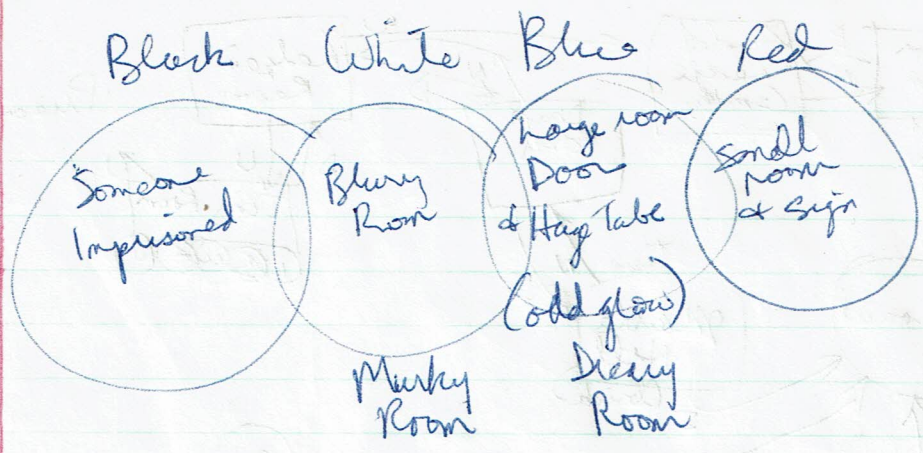 Black White Blue Red
Someone
Imprisoned
Blury
Room
Large room
Door
& Huge Tube
(odd glow)
Small
room
& Sign
Murky
Room
Dreary
Room